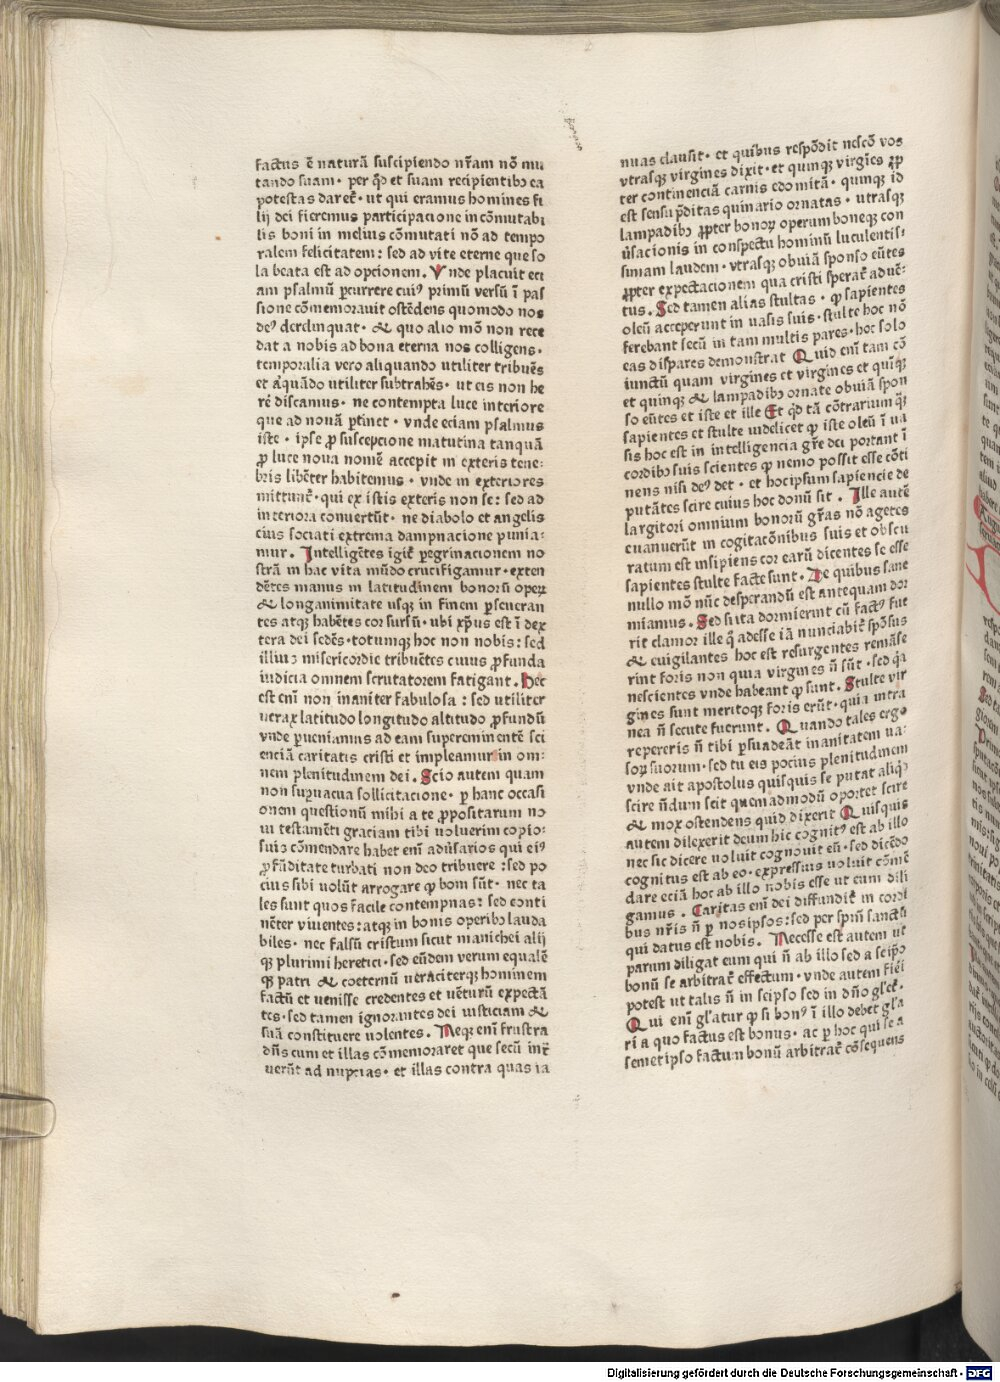 factus ē naturā suscipiendo nr̄am nō mu
tando suam · per qd̄ et suam recipientibꝰ ea
potestas daret᷑ · ut qui eramus homines fi
lij dei fieremus participacione incōmutabi
lis boni in melius cōmutati nō ad tempo
ralem felicitatem : sed ad vite eterne que so
la beata est adopcionem . Vnde placuit eci
am psalmū ꝑcurrere cuiꝰ primū versū ī pas
sione cōmemorauit ostēdens quomodo nos
deꝰ derelinquat · & quo alio mō non rece
dat a nobis ad bona eterna nos colligens ·
temporalia vero aliquando utiliter tribuēs
et aliquādo utiliter subtrahēs · ut eis non he
rē discamus · ne contempta luce interiore
que ad nouā ꝑtinet · vnde eciam psalmus
iste · ipse ꝓ suscepcione matutina tanquā
ꝓ luce noua nomē accepit in exteris tene:
bris libēter habitemus · vnde in exteriores
mittunt᷑ · qui ex istis exteris non se : sed ad
interiora conuertūt · ne diabolo et angelis
eius sociati extrema dampnacione punia:
mur . Intelligētes igit᷑ ꝑegrinacionem no
strā in hac vita mūdo crucifigamur · exten
dētes manus in latitudinem bonorū operꝝ
& longanimitate usqꝫ in finem ꝑseueran
tes atqꝫ habētes cor sursū · ubi xp̄us est ī dex
tera dei sedēs · totumqꝫ hoc non nobis : sed
illius misericordie tribuētes cuius ꝓfunda
iudicia omnem scrutatorem fatigant . Hec
est eni non inaniter fabulosa : sed utiliter
uerax latitudo longitudo altitudo ꝓfundū
vnde ꝑueniamus ad eam supereminentē sci
enciā caritatis cristi et impleamur in om:
nem plenitudinem dei . Scio autem quam
non suꝑuacua sollicitacione · ꝑ hanc occasi
onem questionū mihi a te ꝓpositarum no
ui testamēti graciam tibi uoluerim copio:
suis cōmendare habet enī aduersarios qui eiꝰ
ꝓfūditate turbati non deo tribuere : sed po
cius sibi uolūt arrogare qꝫ boni sūt · nec ta
les sunt quos facile contempnas : sed conti
nēter viuentes : atqꝫ in bonis operibꝰ lauda
biles · nec falsū cristum sicut manichei alij
qꝫ plurimi heretici · sed eūdem verum equalē
qꝫ patri & coeternū ueraciterqꝫ hominem
factū et uenisse credentes et uēturū expectā
tes · sed tamen ignorantes dei iusticiam &
suā constituere uolentes . Neqꝫ enī frustra
dn̄s cum et illas cōmemoraret que secū int᷑
uerūt ad nupcias · et illas contra quas ia
nuas clausit · et quibus respōdit nescō vos
vtrasqꝫ virgines dixit · et quinqꝫ virgīes ꝓp
ter continenciā carnis edomitā · quinqꝫ id
est sensu p̄ditas quinario ornatas · utrasqꝫ
lampadibꝰ ꝓpter bonoꝝ operum boneqꝫ con
uersacionis in conspectu hominū luculentis:
simam laudem · vtrasqꝫ obuiā sponso eūtes
ꝓpter expectacionem qua cristi sperat᷑ aduē:
tus . Sed tamen alias stultas · qꝫ sapientes
oleū acceperunt in uasis suis · stulte hoc nō
ferebant secū in tam multis pares · hoc solo
eas dispares demonstrat Quid enī tam cō
iunctū quam virgines et virgines et quīqꝫ
et quinqꝫ & lampadibꝰ ornate obuiā spon
so eūtes et iste et ille Et qd̄ tā cōtrarium qꝫ
sapientes et stulte uidelicet qꝫ iste oleū ī ua
sis hoc est in intelligencia gr̄e dei portant ī
cordibꝰ suis scientes qꝫ nemo possit esse cōti
nens nisi deꝰ det · et hoc ipsum sapiencie de
putātes scire cuius hoc donū sit . Ille autē
largitori omnium bonorū gr̄as nō agētes
euanuerūt in cogitacōnibus suis et obscu
ratum est insipiens cor earū dicentes se esse
sapientes stulte facte sunt . De quibus sane
nullo mō nūc desperandū est antequam dor
miamus . Sed si ita dormierint cū factꝰ fue
rit clamor ille qꝫ adesse iā nunciabit᷑ spōsus
& euigilantes hoc est resurgentes remāse
rint foris non quia virgines n̄ sūt · sed qꝫa
nescientes vnde habeant qꝫ sunt . Stulte vir
gines sunt meritoqꝫ foris erūt · quia intra
nea n̄ secute fuerunt . Quando tales ergo
repereris n̄ tibi ꝑsuadeāt inanitatem ua:
soꝝ suorum · sed tu eis pocius plenitudinem
vnde ait apostolus quisquis se putat aliqꝫd
scire nūdum scit quemadmodū oportet scire
& mox ostendens quid dixerit Quisquis
autem dilexerit deum hic cognitꝰ est ab illo
nec sic dicere uoluit cognouit eū · sed dicēdo
cognitus est ab eo · expressius uoluit cōmē
dare eciā hoc ab illo nobis esse ut eum dili
gamus . Caritas enī dei diffundit᷑ in cordi
bus nr̄is n̄ ꝑ nosipsos : sed per spm̄ sanctū
qui datus est nobis . Necesse est autem ut
parum diligat eum qui n̄ ab illo sed a seip̄o
bonū se arbitrat᷑ effectum · vnde autem fieri
potest ut talis n̄ in seipso sed in dn̄o glet᷑ ·
Qui enī gl̄atur qꝫ si bonꝰ ī illo debet gl̄a
ri a quo factus est bonus · ac ꝑ hoc qui se a
semetipso factum bonū arbitrat᷑ cōsequens
Digitalisierung gefördert durch die Deutsche Forschungsgemeinschaft - DFG